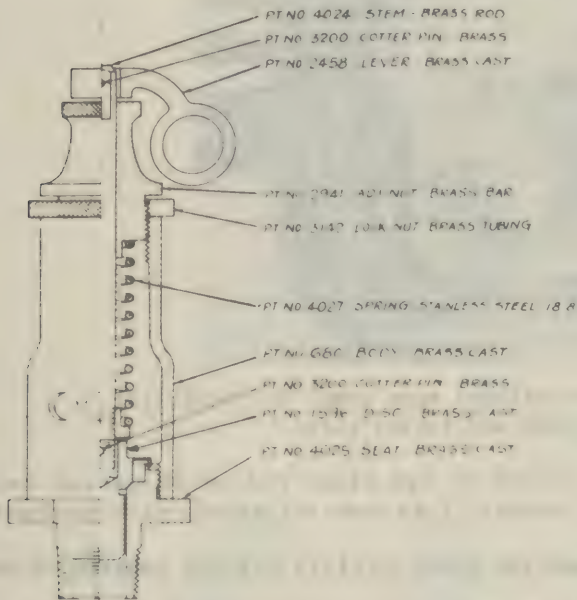 PT NO 4024 STEM - BRASS ROD
PT NO 3200 COTTER PIN BRASS
PT NO 2458 LEVER BRASS CAST
PT NO 2941 ADJ NUT BRASS BAR
PT NO 3142 LOCK NUT BRASS TUBING
PT NO 4027 SPRING STANLESS STEEL 18 8
PT NO BODY BRASS CAST
PT NO 3200 COTTER PIN BRASS
PT NO DISC BRASS CAST
PT NO 4025 SEAT BRASS CAST